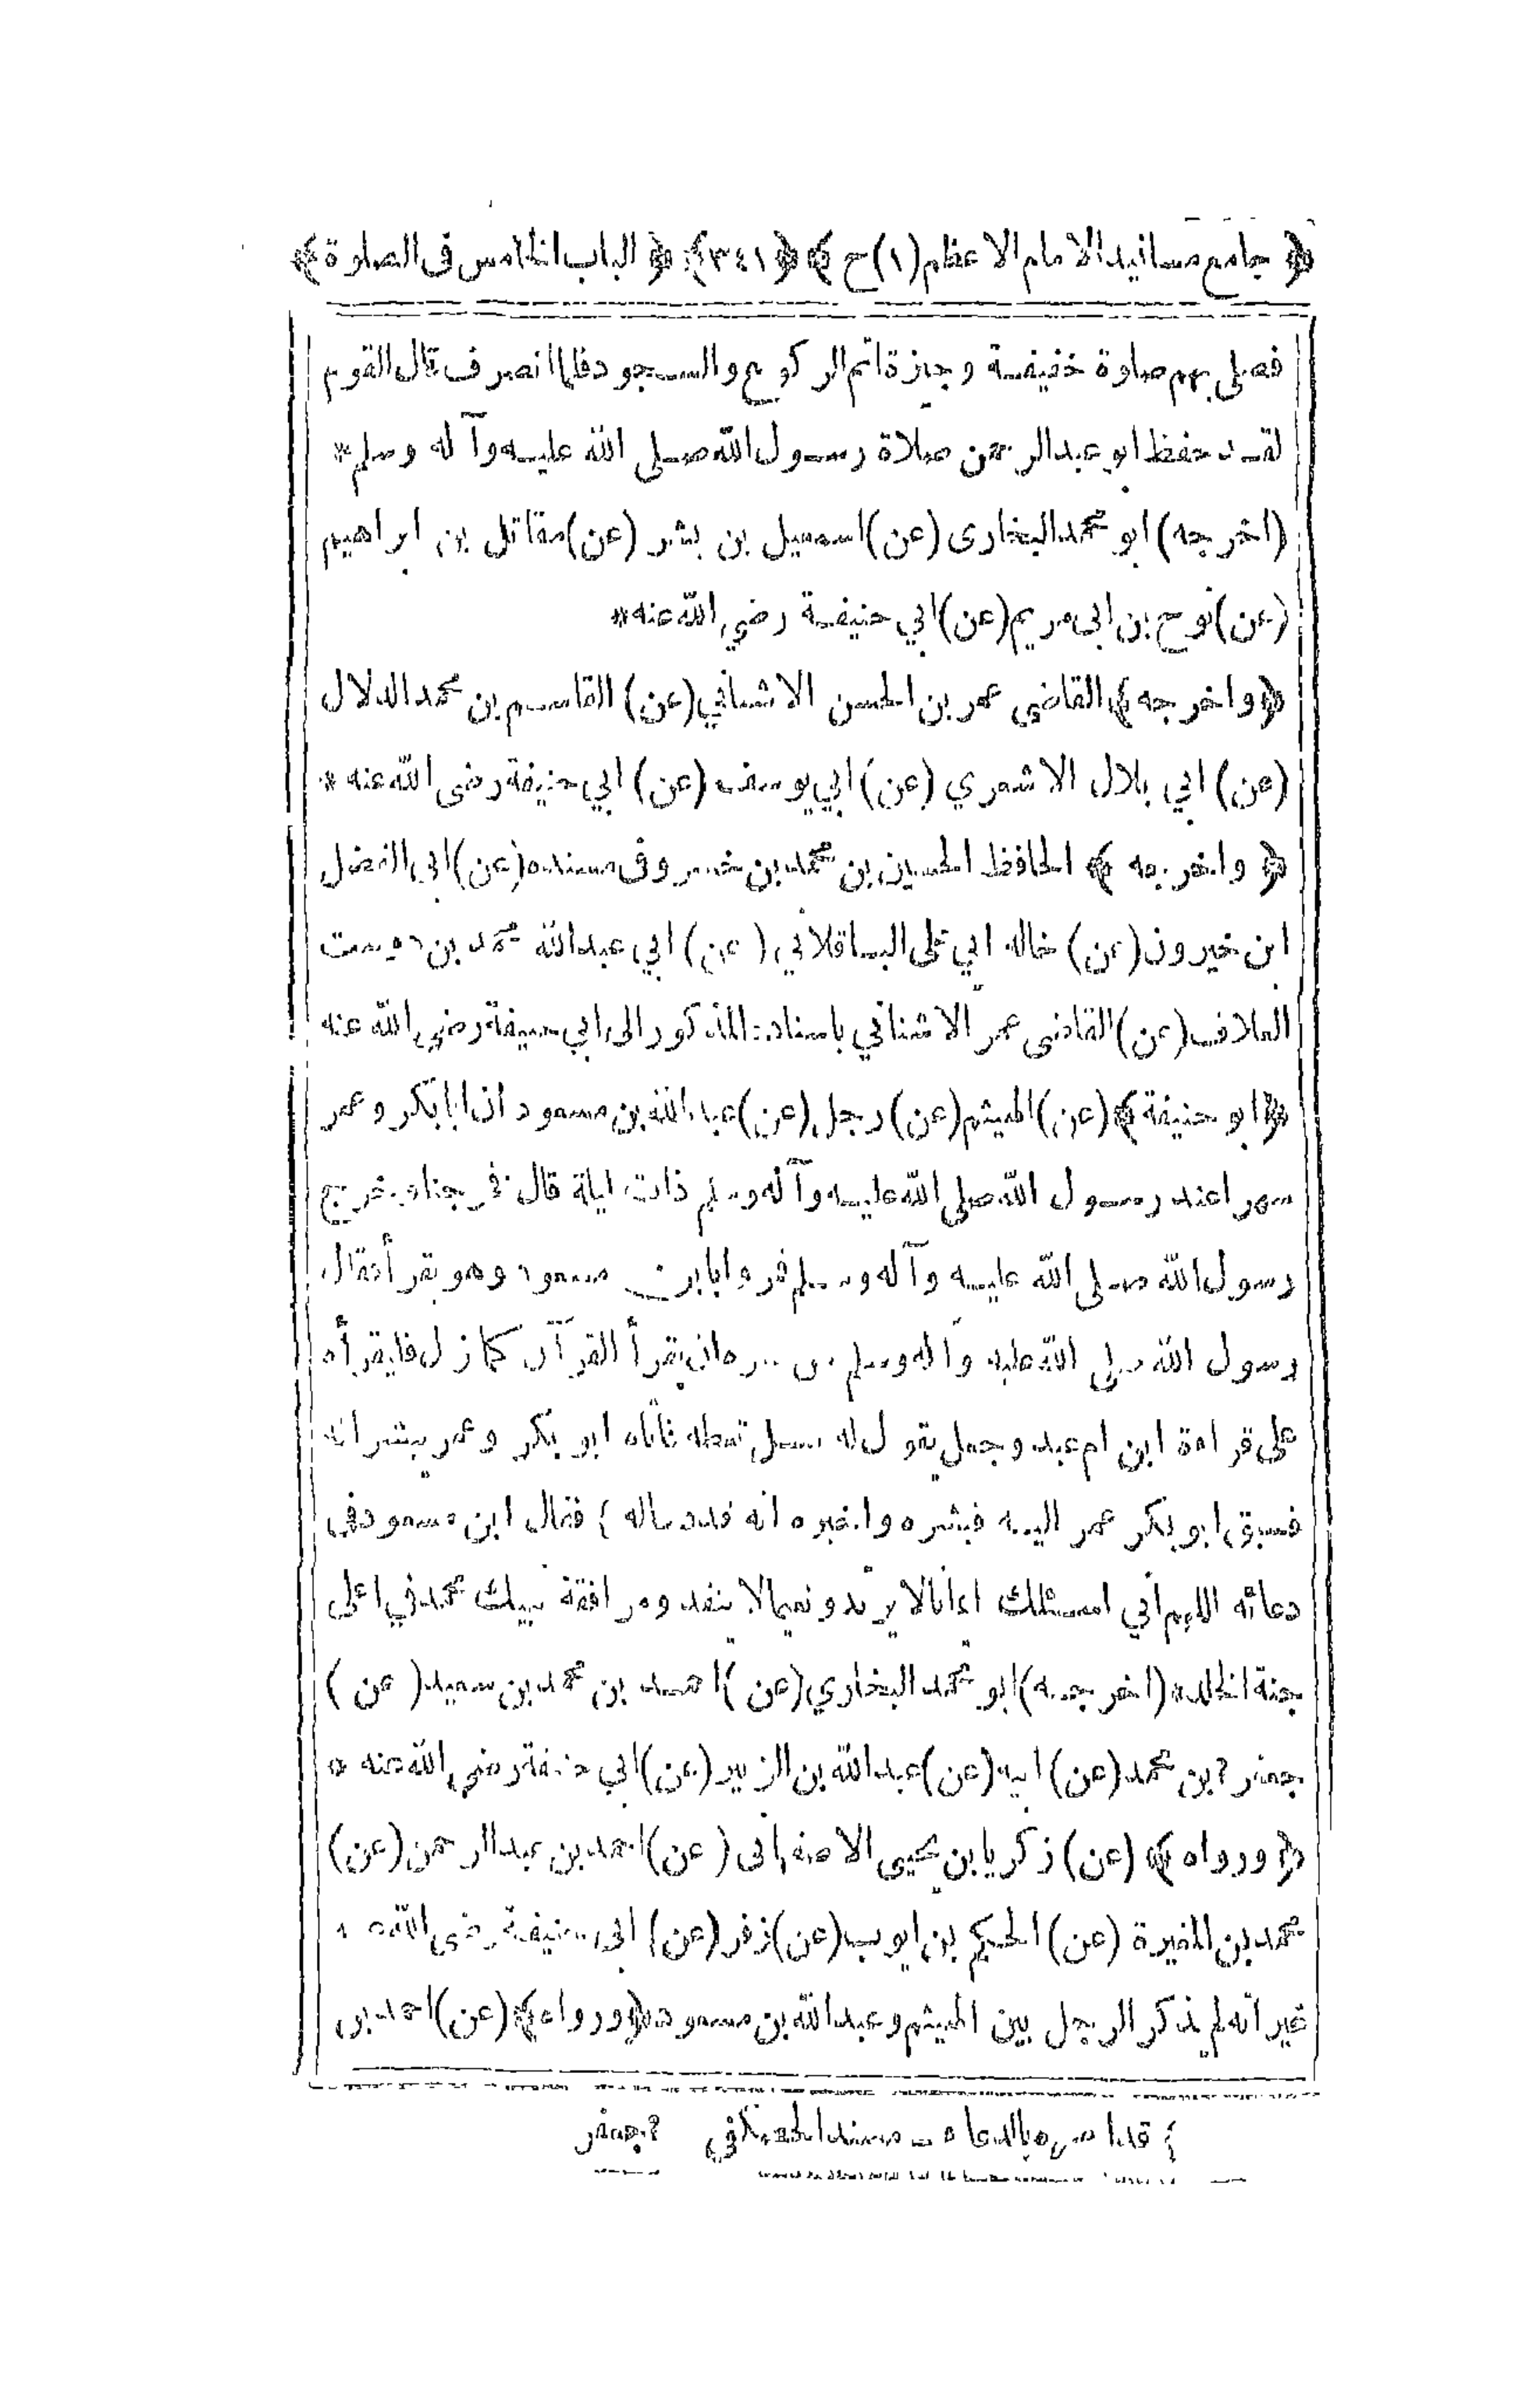 ﴿ جامع مسانيد الامام الاعظم (١) ج ﴾ ﴿٣٤١﴾ ﴿ الباب الخامس فى الصلوة ﴾
فصلى بهم صلوة خفيفة وجيزة اتم الركوع والسجود فلما انصرف قال القوم
لقد حفظ ابو عبدالرحمن صلاة رسول الله صلى الله عليه وآله وسلم*
(اخرجه) ابو محمد البخارى (عن) اسمعيل بن بشر (عن) مقاتل بن ابراهيم
(عن) نوح بن ابى مريم (عن) ابي حنيفة رضي الله عنه*
﴿واخرجه﴾ القاضي عمر بن الحسن الاشناني (عن) القاسم بن محمد الدلال
(عن) ابي بلال الاشعري (عن) ابي يوسف (عن) ابي حنيفة رضى الله عنه *
﴿ واخرجه ﴾ الحافظ الحسين بن محمد بن خسرو فى مسنده (عن) ابى الفضل
ابن خيرون (عن) خاله ابي على الباقلاني (عن) ابي عبدالله محمد بن دوست
العلاف (عن) القاضى عمر الاشناني باسناده المذكور الى ابي حنيفة رضي الله عنه
﴿ابو حنيفة﴾ (عن) الهيثم (عن) رجل (عن) عبدالله بن مسعود ان ابا بكر وعمر
سهرا عند رسول الله صلى الله عليه وآله وسلم ذات ليلة قال فخرجنا وخرج
رسول الله صلى الله عليه وآله وسلم فمروا بابن مسعود وهو يقرأ فقال
رسول الله صلى الله عليه وآله وسلم من سره ان يقرأ القرآن كما نزل فليقرأه
على قراءة ابن ام عبد وجعل يقول له سل تعطه فاتاه ابو بكر وعمر يبشرانه
فسبق ابو بكر عمر اليه فبشره واخبره انه قد دعاله ٤ فقال ابن مسعود فى
دعائه اللهم اني اسئلك ايمانا لا يرتد ونعيما لا ينفد ومرافقة نبيك محمد في اعلى
جنة الخلد* (اخرجه) ابو محمد البخاري (عن) احمد بن محمد بن سعيد (عن)
جعفر ؟ بن محمد (عن) ابيه (عن) عبدالله بن الزبير (عن) ابي حنيفة رضي الله عنه *
﴿ورواه﴾ (عن) زكريا بن يحيى الاصفهانى (عن) احمد بن عبدالرحمن (عن)
محمد بن المغيرة (عن) الحكم بن ايوب (عن) زفر (عن) ابي حنيفة رضى الله
غير انه لم يذكر الرجل بين الهيثم وعبدالله بن مسعود ﴿ورواه﴾ (عن) احمد بن
٤ قد امره بالدعاء مسند الحصكفي ؟ جعفر